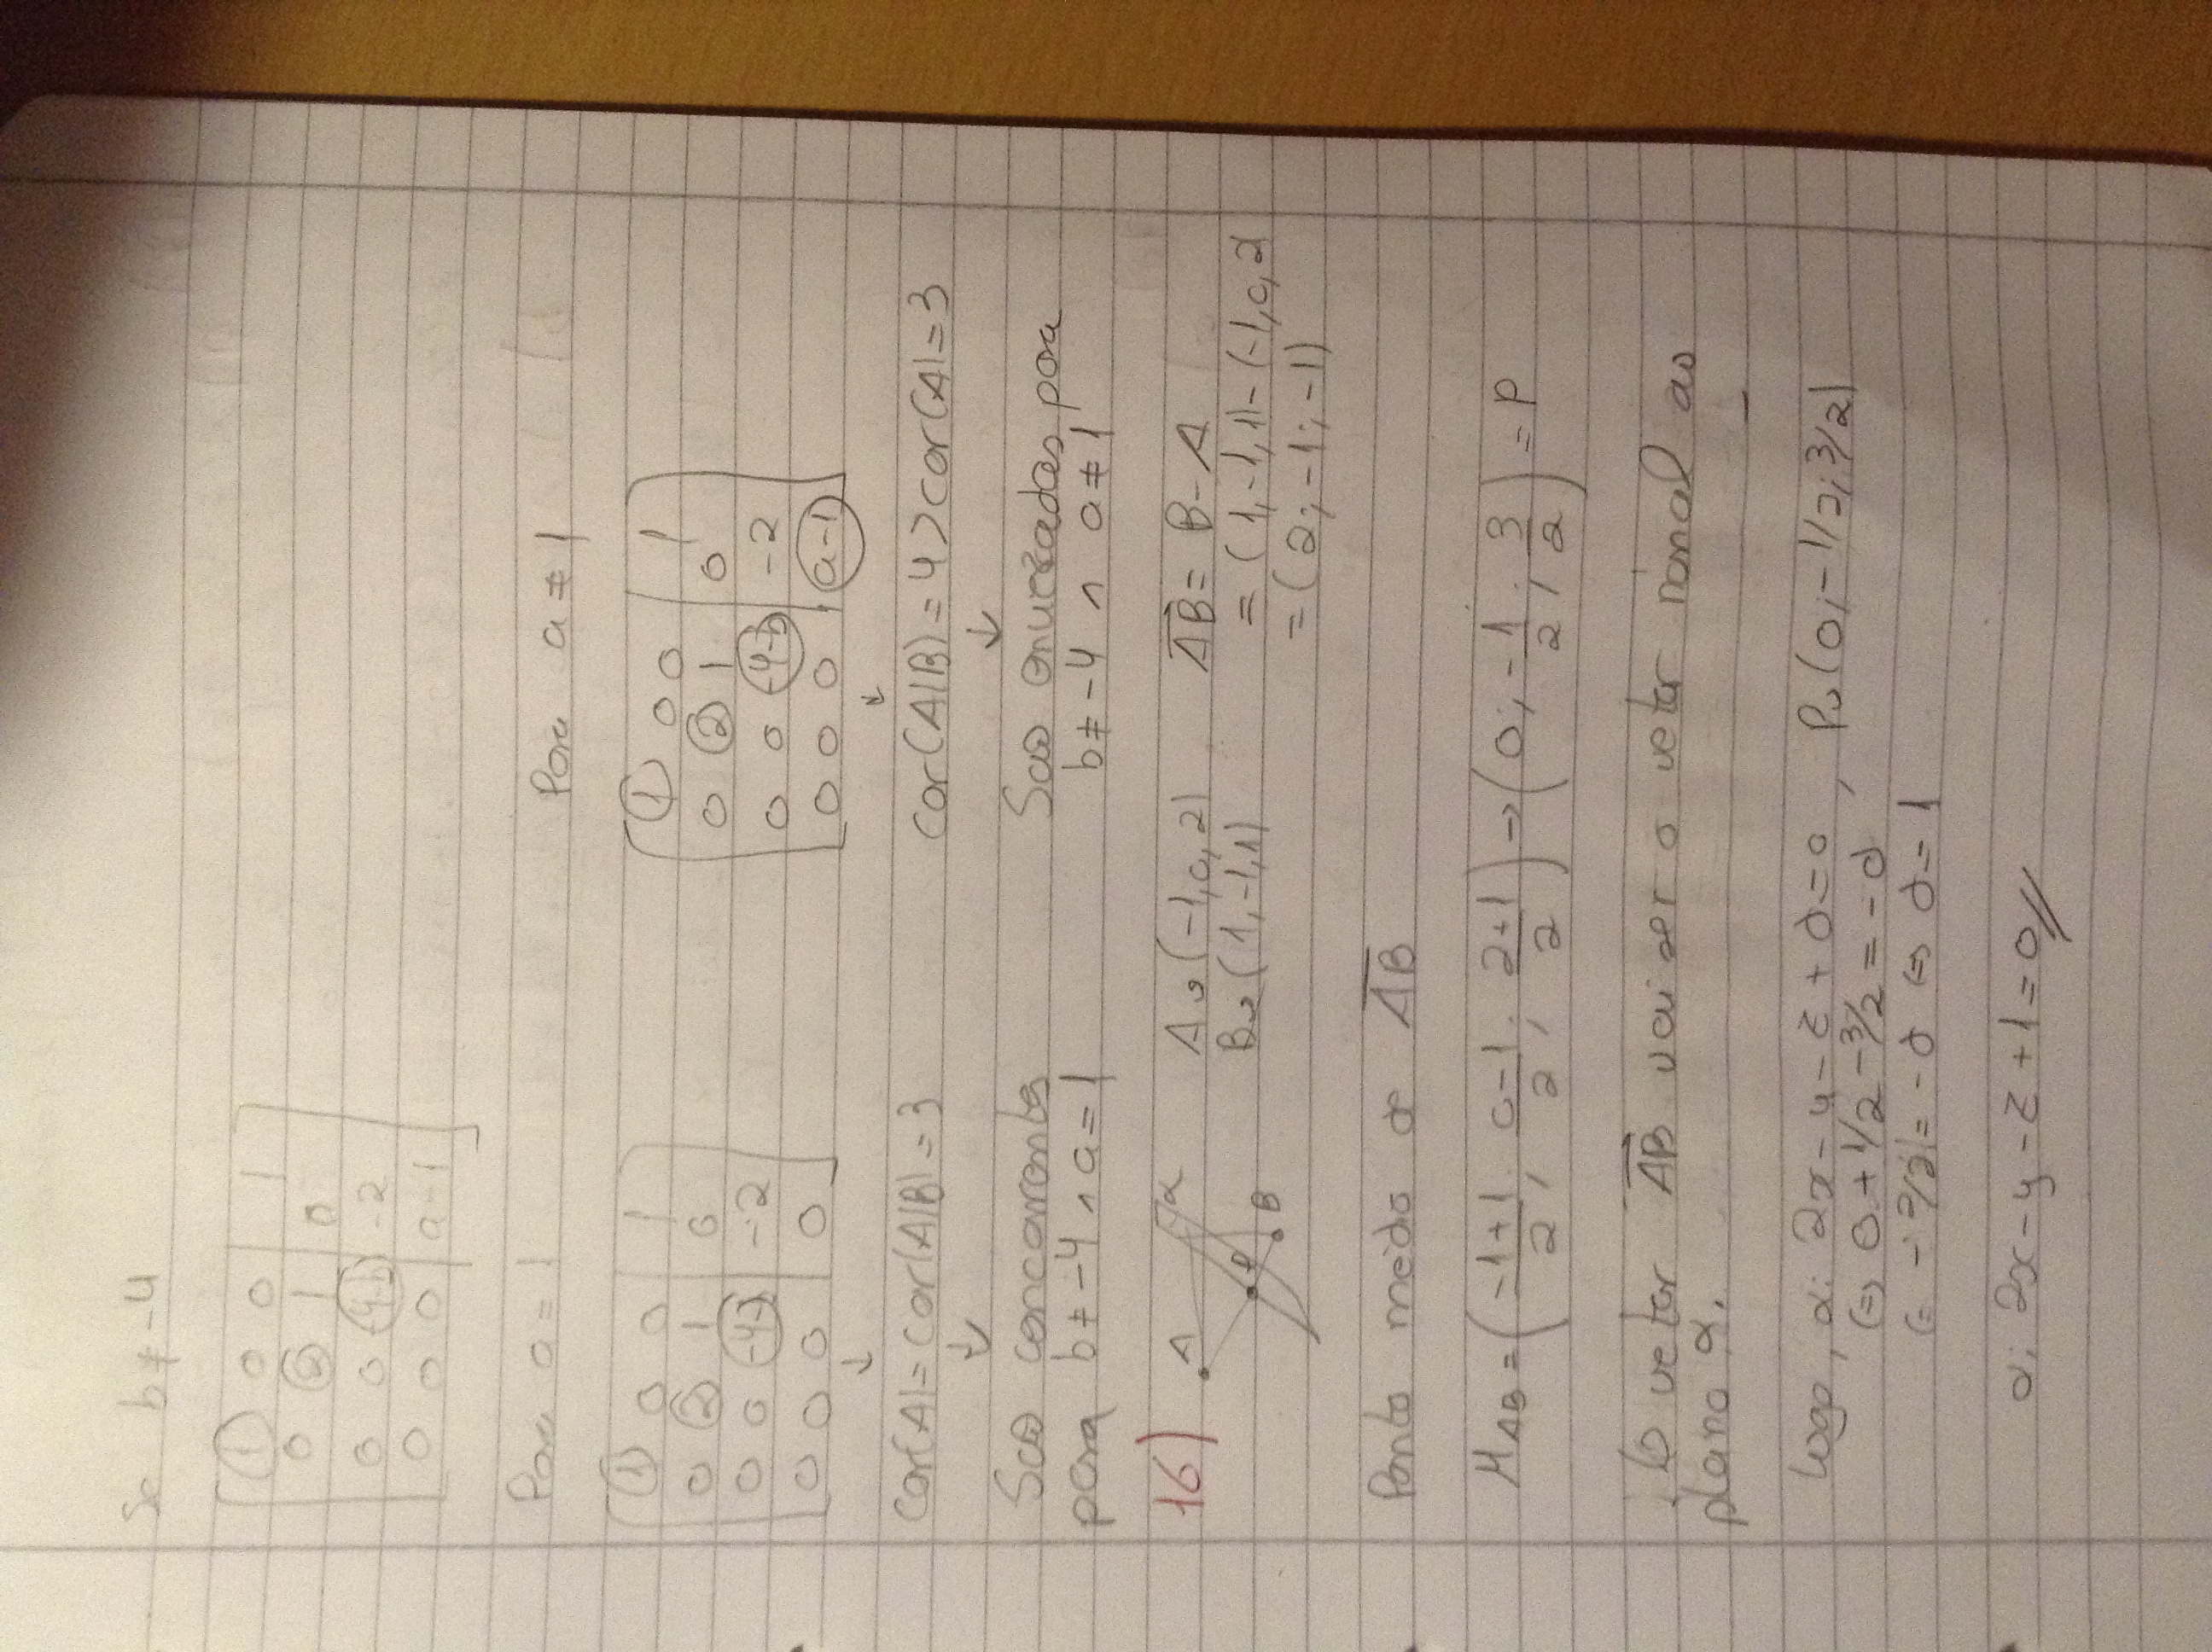 Se b ≠ -4
1 0 0 | 1
0 2 1 | 0
0 0 -4-b | -2
0 0 0 | a-1
Para a = 1
1 0 0 | 1
0 2 1 | 0
0 0 -4-b | -2
0 0 0 | 0
↓
Car(A) = Car(A|B) = 3
↓
São concorrentes
para b ≠ -4 ∧ a = 1
Para a ≠ 1
1 0 0 | 1
0 2 1 | 0
0 0 -4-b | -2
0 0 0 | a-1
↓
Car(A|B) = 4 > car(A) = 3
↓
São enviezadas para
b ≠ -4 ∧ a ≠ 1
16) A α P B
A → (-1, 0, 2)
B → (1, -1, 1)
AB = B - A
= (1, -1, 1) - (-1, 0, 2)
= (2; -1; -1)
Ponto médio de AB
M AB = (-1+1/2; 0-1/2; 2+1/2) → (0; -1/2; 3/2) = P
O vetor AB vai ser o vetor normal ao
plano α.
Logo, α: 2x - y - z + d = 0, P → (0; -1/2; 3/2)
⇔ 0 + 1/2 - 3/2 = -d
⇔ -2/2 = -d ⇔ d = 1
α: 2x - y - z + 1 = 0 //